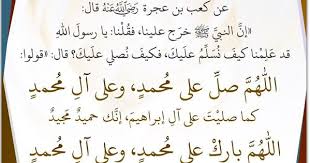 عن كعب بن عجرة رَضِيَ اللهُ عَنْهُ قال:
«إنَّ النبيَّ ﷺ خَرَج علينا، فقُلْنا: يا رسولَ اللهِ
قد عَلِمْنا كيف نُسَلِّمُ عليكَ، فكَيفَ نُصلي عليكَ؟ قال: «قولوا:
اللَّهُمَّ صلِّ على مُحمدٍ، وعلى آلِ مُحمدٍ
كما صليْتَ على آلِ إبراهيمَ، إنَّك حميدٌ مجيدٌ
اللَّهُمَّ بارِكْ على مُحمدٍ، وعلى آلِ مُحمدٍ